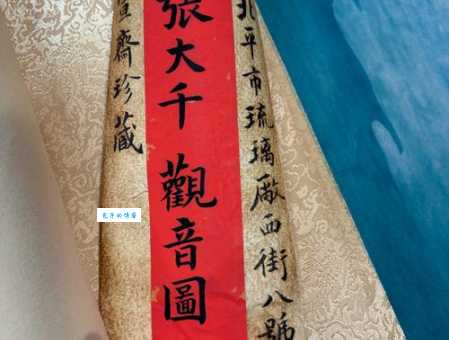 北平市琉璃廠西街八號
張大千 觀音圖
宣齋珍藏